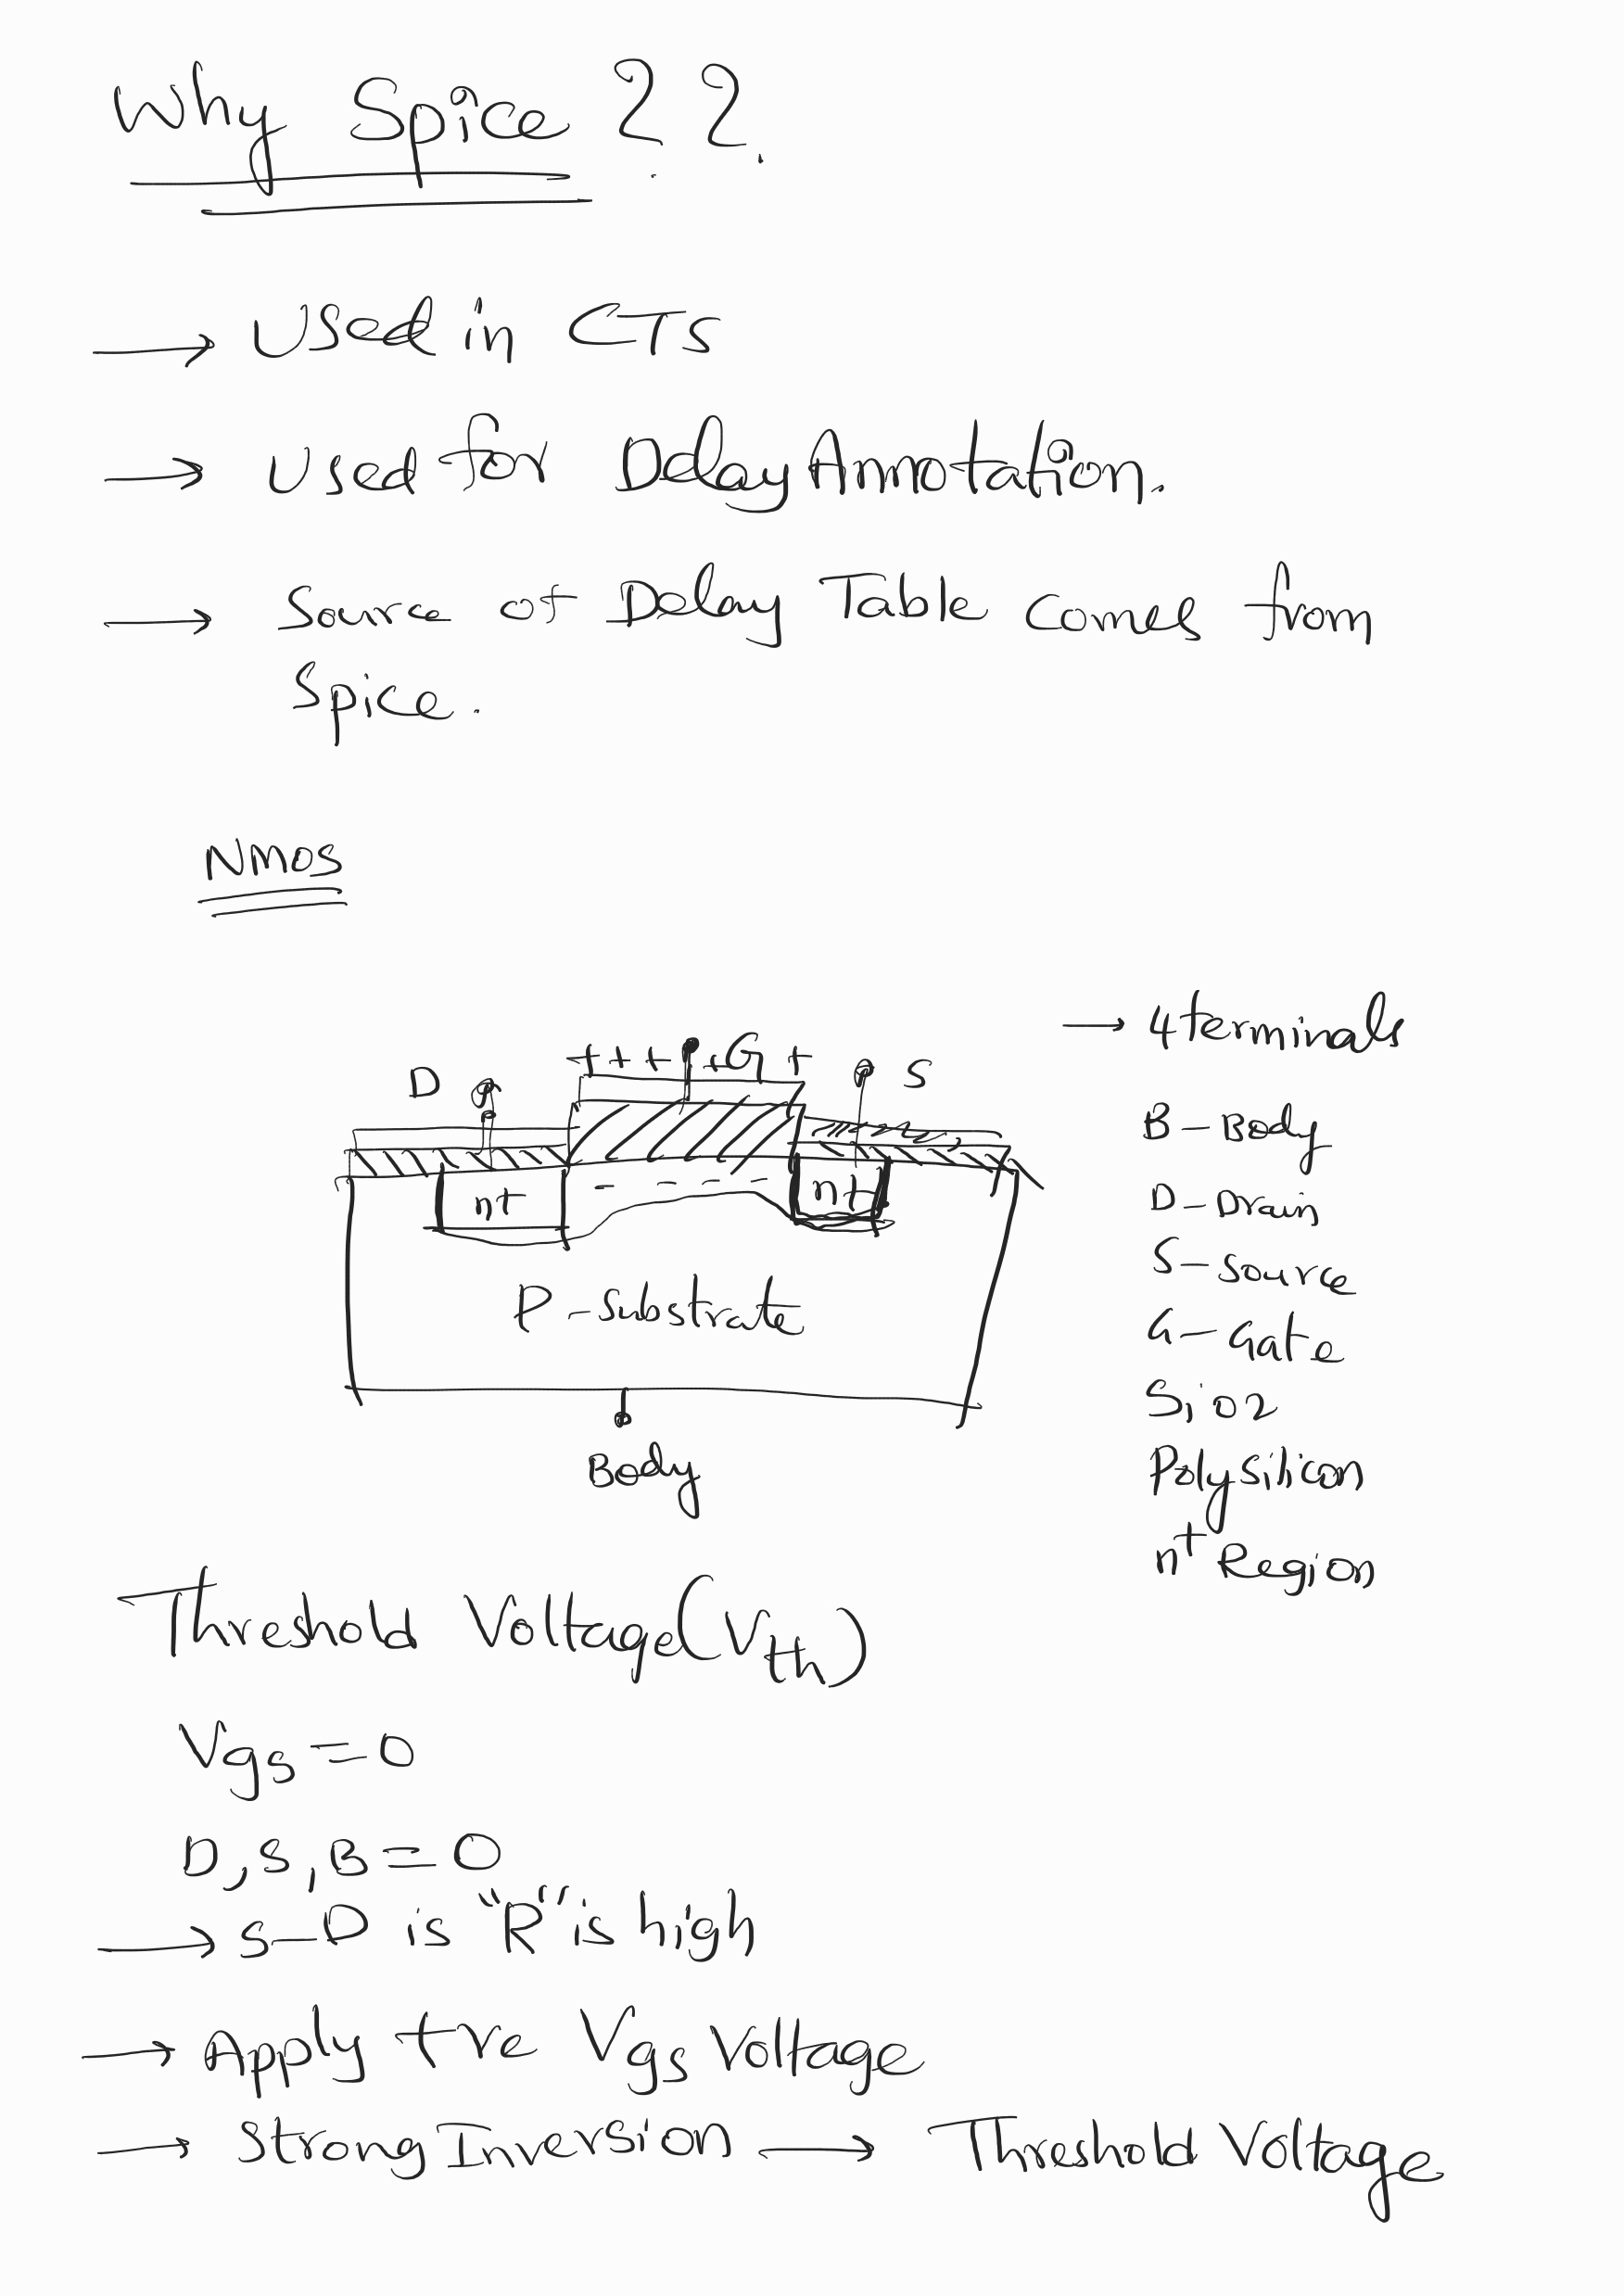 Why Spice ??
→ Used in CTS
→ Used for Delay Annotation.
→ Source of Delay Table Comes from
Spice.
Nmos
→ 4 terminals
+ + + + G +
D
S
B - Body
n+
n+
D - Drain
P - substrate
S - source
G - Gate
Sio2
Body
Polysilicon
n+ Region
Threshold Voltage (Vth)
Vgs = 0
D, S, B = 0
→ S - D is "R" is high
→ Apply +ve Vgs Voltage
→ Strong Inversion → Threshold Voltage